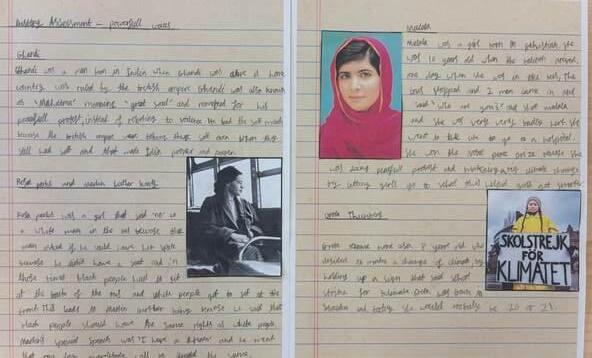 History Assessment - powerfull voices
Ghandi
Ghandi was a man born in India when Ghandi was alive is home
country was ruled by the british empire Ghandi was also known
as "Mahatma" meaning "great soul" and for his
peacefull protest, instead of to violence He had the salt march
because the british empire were there salt even when they
still had salt and that made India poorer and poorer.
Rosa parks and martin luther king
Rosa parks was a girl that said "no" to
a white man in the bus because the
man asked if he could have her spot
because he didn't have a seat and in
those times black people had to sit
at the back of the bus and white people got to sit at the
front. This leads to Martin luther king because he said that
black people should have the same rights as white people.
Making special speech was "I have a dream" and he went
that one day
Malala
Malala was a girl born in pakistan she
was 10 years old when the taliban
one day when she was in the bus, The
bus stopped and 2 men came in and
said "who are you?" and shot malala
and she was very very badly hurt she
went to the uk to go to a hospital.
She won the nobel peace prize because she
was doing peacefull protest and
by letting girls go to school this helped girls get smarter.
Greta Thunberg
Greta was a 8 year old who
decided to make a change of climate, by
holding up a sign that said school
strike for klimate Greta was born in
Sweden and today she would probably be 20 or 21.
SKOLSTREJK
FÖR
KLIMATET